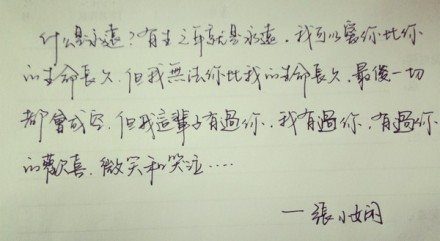 什么是永遠？有生之年就是永遠。我可以愛你比你
的生命長久.但我無法你比我的生命長久.最後一切
都會成空.但我這輩子有過你.我有過你.有過你
的歡喜.微笑和哭泣....
—張小嫻